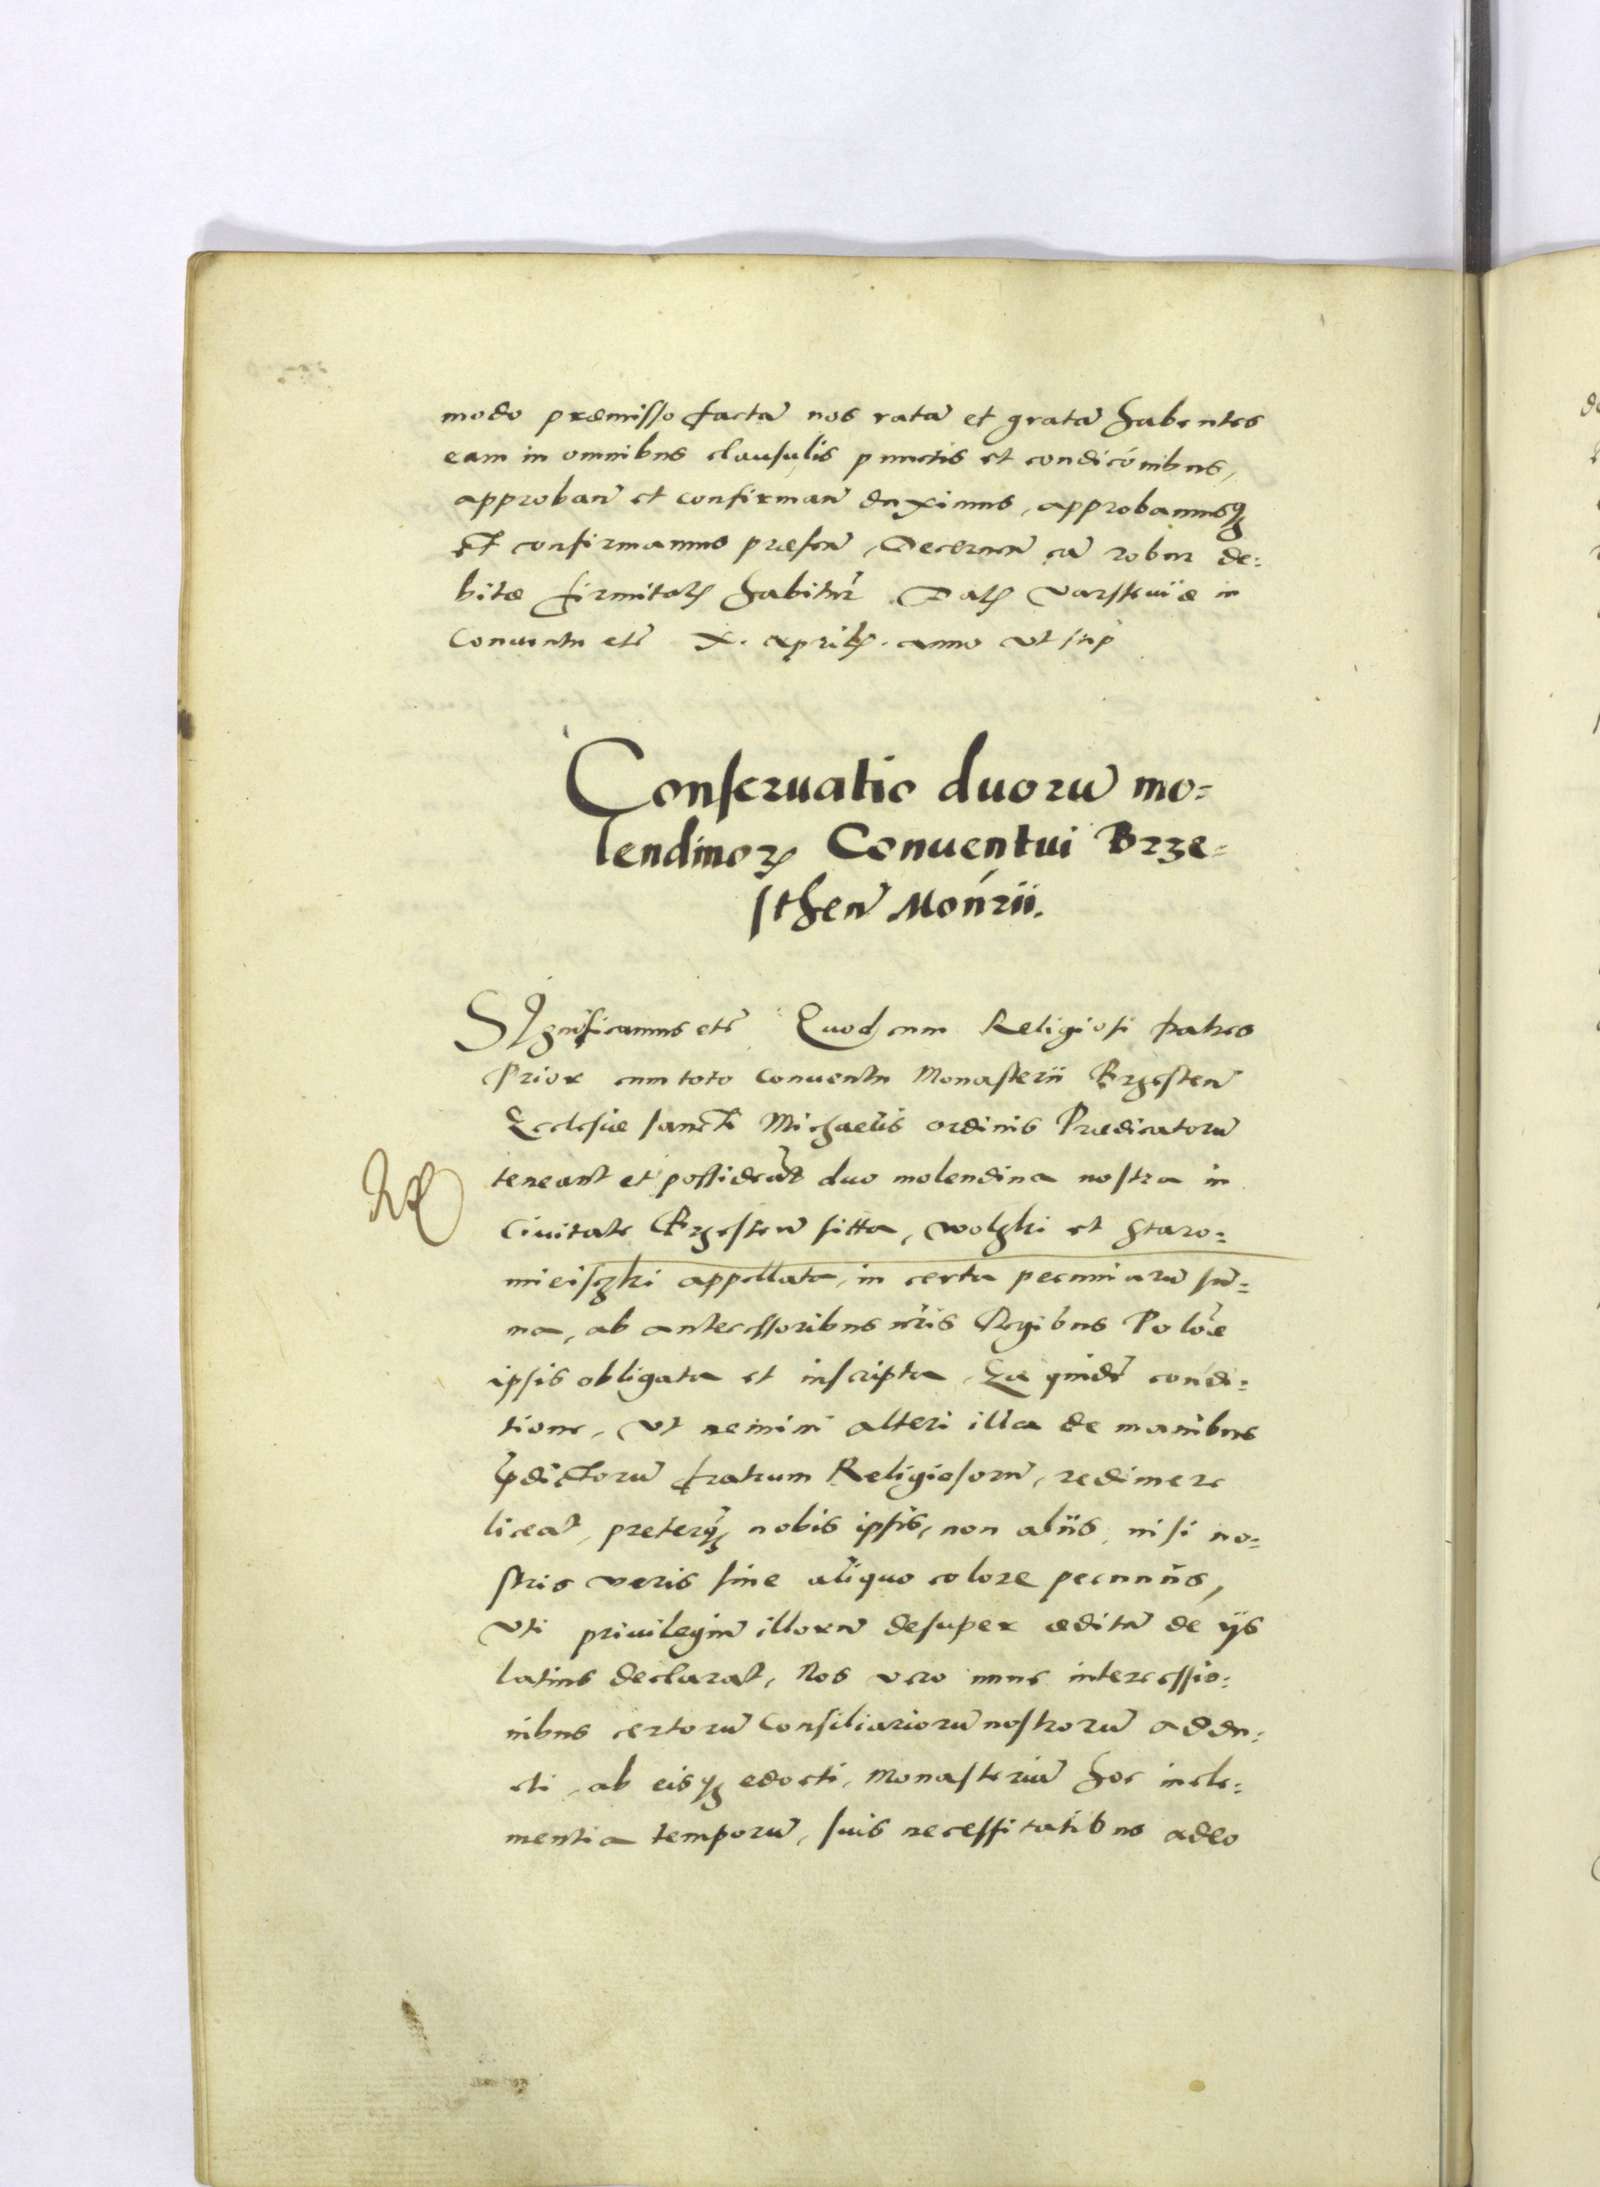 modo præmisso factã nos ratã et gratã habentes
eam in omnibus clausulis punctis et condicónibus,
approban̄ et confirman̄ duximus, approbamusqȝ
et confirmamus præsen̄, Decernen̄ eã robur de=
bitæ firmitatꝭ habitur̄. Datꝭ Varsteuiiæ in
Conuentu etc̄ X. aprilꝭ. anno vt sup̄
Conseruatio duorũ mo=
lendinoꝝ Conuentui Brze=
sthen̄ Mon̄rii.
SIgnificamus etc̄ Quod cum Religiosi fratres
Prior cum toto conuentu Monasterii Brzesten̄
Ecclesiæ sancti Michaelis ordinis Prædicatorũ
teneant et possideãt duo molendina nostra in
Ciuitate Brzesten̄ sitta, wolszki et staro=
mieiszki appellata, in certa pecuniarũ sũ=
ma, ab antecessoribus nr̃is Regibus Polõe
ipsis obligata et inscripta, Ea quidẽ condi=
tione, vt nemini alteri illa de manibus
p̄dictorũ fratrum Religiosorũ, redimere
liceat, preterqȝ nobis ipsis, non aliis, nisi no=
stris veris sine aliquo colore pecuniis,
vti priuilegiũ illorũ desuper æditũ de iis
latius declarat, Nos vero nunc intercessio=
nibus certorũ Consiliariorũ nostrorũ addu=
cti, ab eisqȝ edocti, Monasteriũ hoc incle=
mentia temporũ, suis necessitatibus adeo